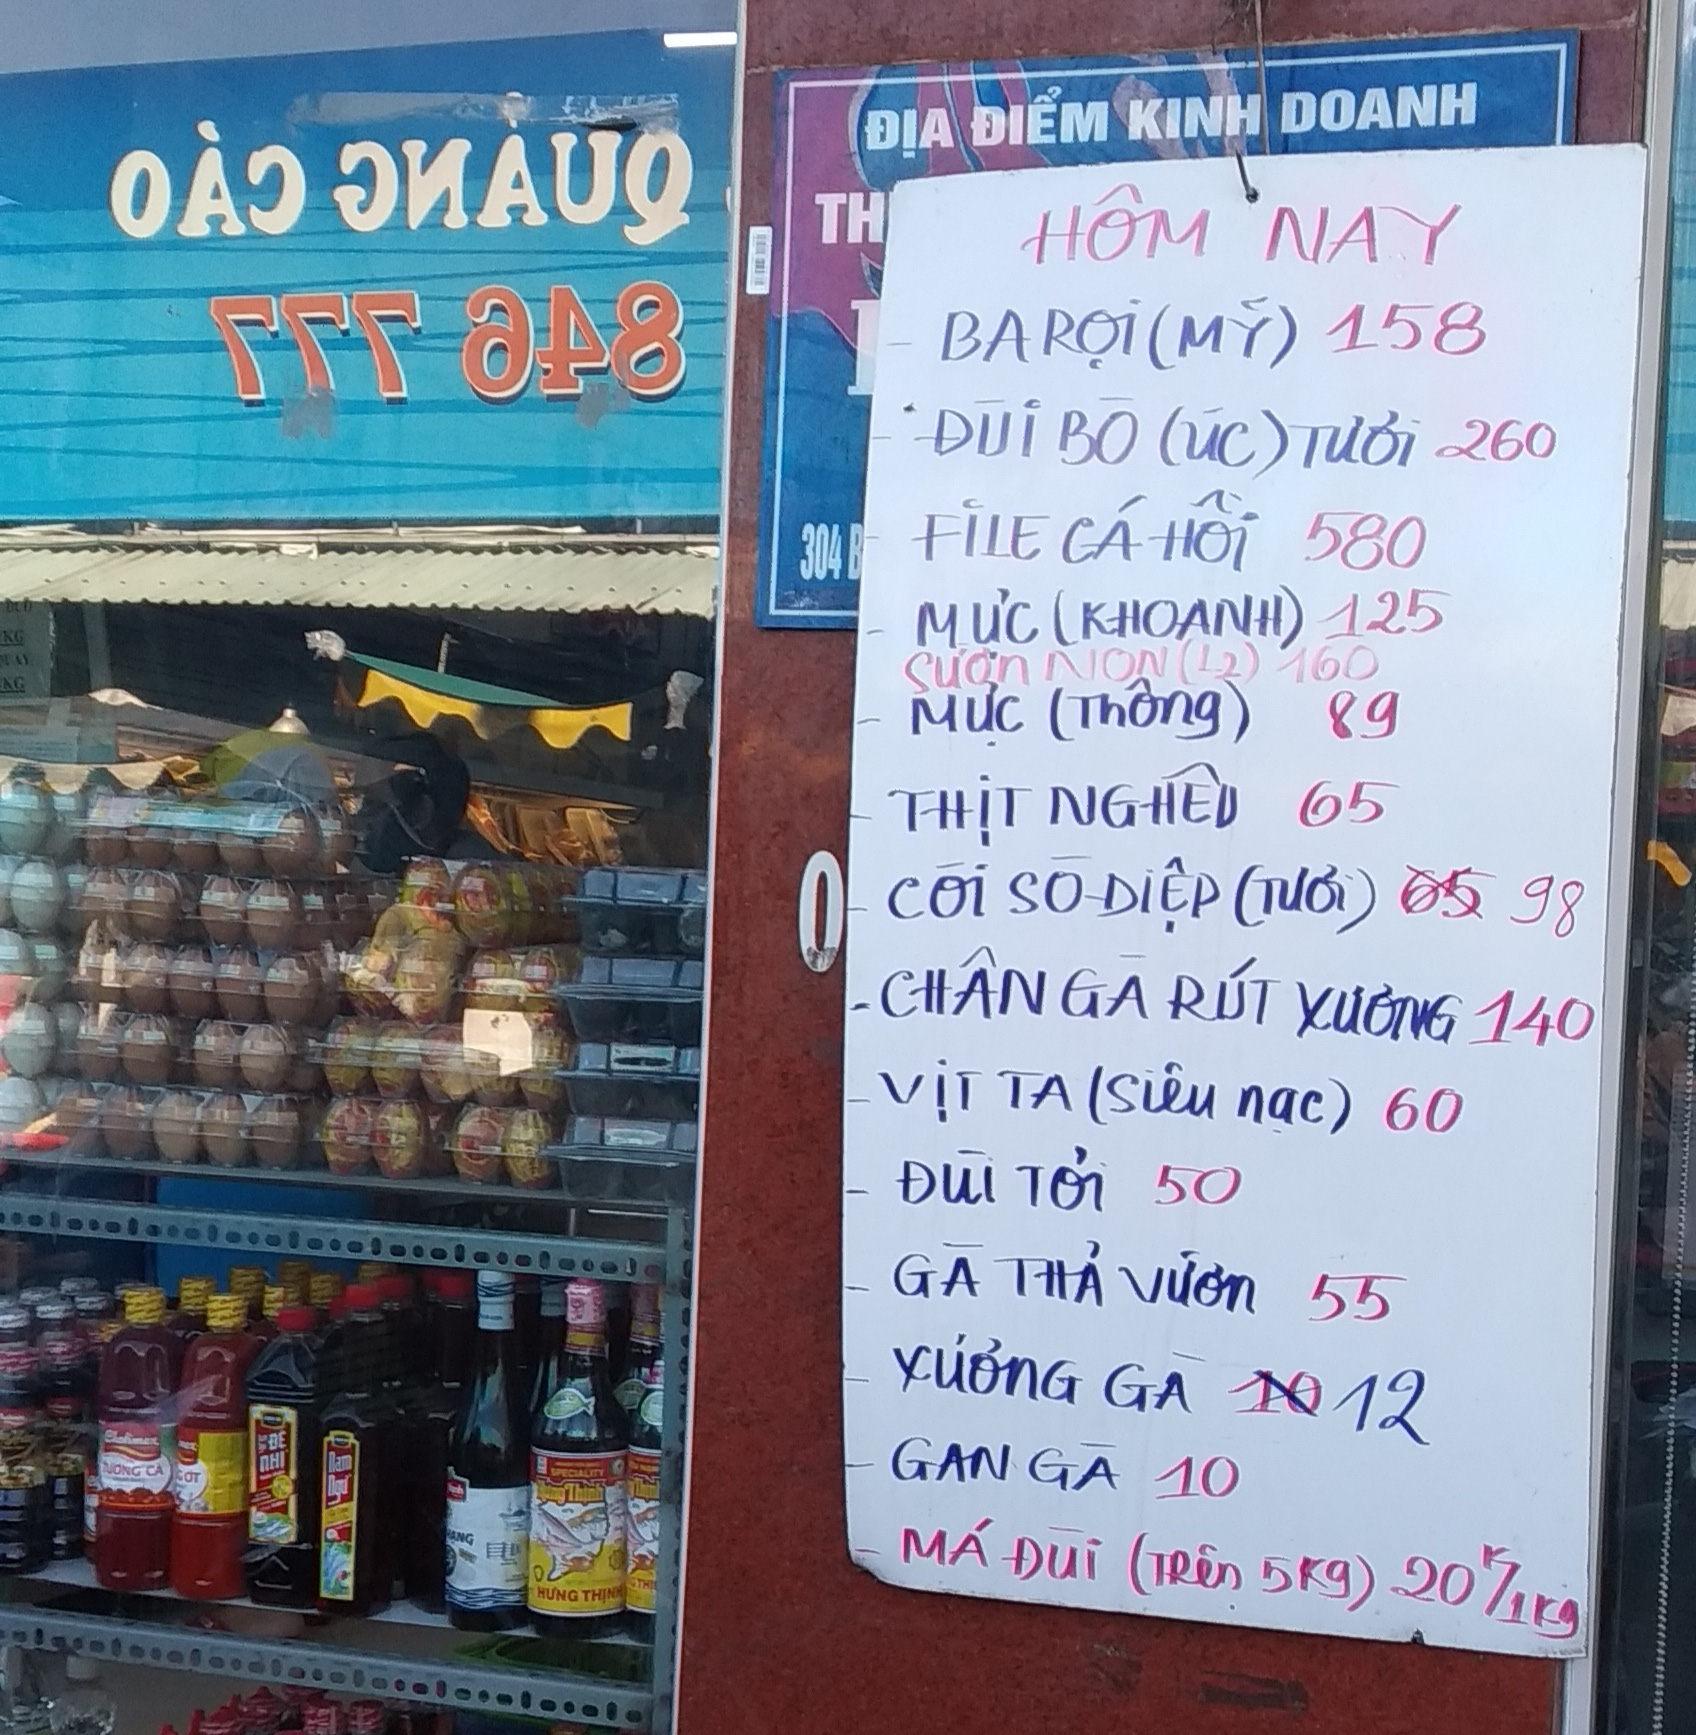 QUẢNG CÁO
846 777
ĐỊA ĐIỂM KINH DOANH
TH
304 B
0
HÔM NAY
- BA RỌI (MỸ) 158
- ĐÙI BÒ (ÚC) TƯƠI 260
- FILE CÁ HỒI 580
- MỰC (KHOANH) 125
SƯỜN NON (L2) 160
- MỰC (Thông) 89
- THỊT NGHÊU 65
- CỒI SÒ ĐIỆP (TƯƠI) 65 98
- CHÂN GÀ RÚT XƯƠNG 140
- VỊT TA (Siêu nạc) 60
- ĐÙI TỎI 50
- GÀ THẢ VƯỜN 55
- XƯƠNG GÀ 10 12
- GAN GÀ 10
- MÁ ĐÙI (TRÊN 5Kg) 20K/1Kg
Cholimex
TƯƠNG CÀ
ĐỆ NHỊ
Nam Ngư
SPECIALITY
Hưng Thịnh
HƯNG THỊNH